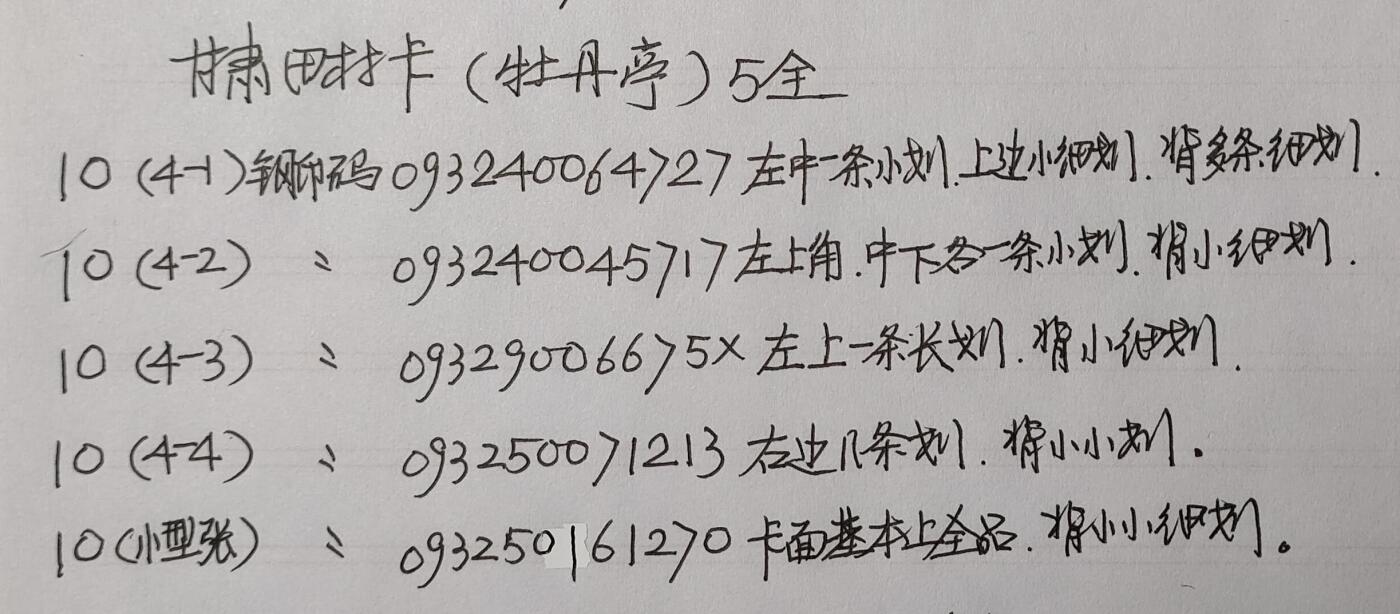 甘肃田村卡（牡丹亭）5全
10（4-1）钢印码093240064727左中一条小划.上边小细划.背多条细划.
10（4-2） 〃 093240045717左上角.中下各一条小划.背小细划.
10（4-3） 〃 09329006675X左上一条长划.背小细划.
10（4-4） 〃 093250071213右边几条划.背小小划。
10（小型张） 〃 093250161270卡面基本上全品.背小小细划。